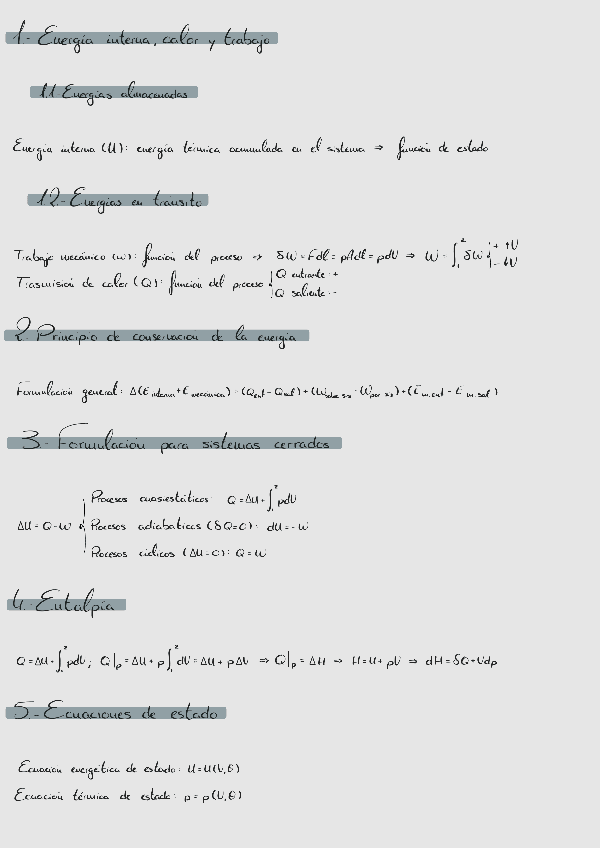 1.- Energía interna, calor y trabajo
1.1 Energías almacenadas
Energía interna (U): energía térmica acumulada en el sistema ⇒ función de estado
1.2.- Energías en tránsito
Trabajo mecánico (W): función del proceso → δW = Fdl = pAdl = pdV ⇒ W = ∫₁² δW { + ↑V
- ↓V
Trasmisión de calor (Q): función del proceso { Q entrante: +
Q saliente: -
2. Principio de conservación de la energía
Formulación general: Δ(E interna + E mecánica) = (Qent - Qsal) + (Wsobre sis - Wpor sis) + (E m.ent - E m.sal)
3.- Formulación para sistemas cerrados
Procesos cuasiestáticos: Q = ΔU + ∫₁² pdV
ΔU = Q - W { Procesos adiabáticos (δQ=0): dU = - W
Procesos cíclicos (ΔU=0): Q = W
4.- Entalpía
Q = ΔU + ∫₁² pdV; Q|p = ΔU + p∫₁² dV = ΔU + pΔV ⇒ Q|p = ΔH ⇒ H = U + pV ⇒ dH = δQ + Vdp
5.- Ecuaciones de estado
Ecuación energética de estado: U = U(V,θ)
Ecuación térmica de estado: p = p(V,θ)